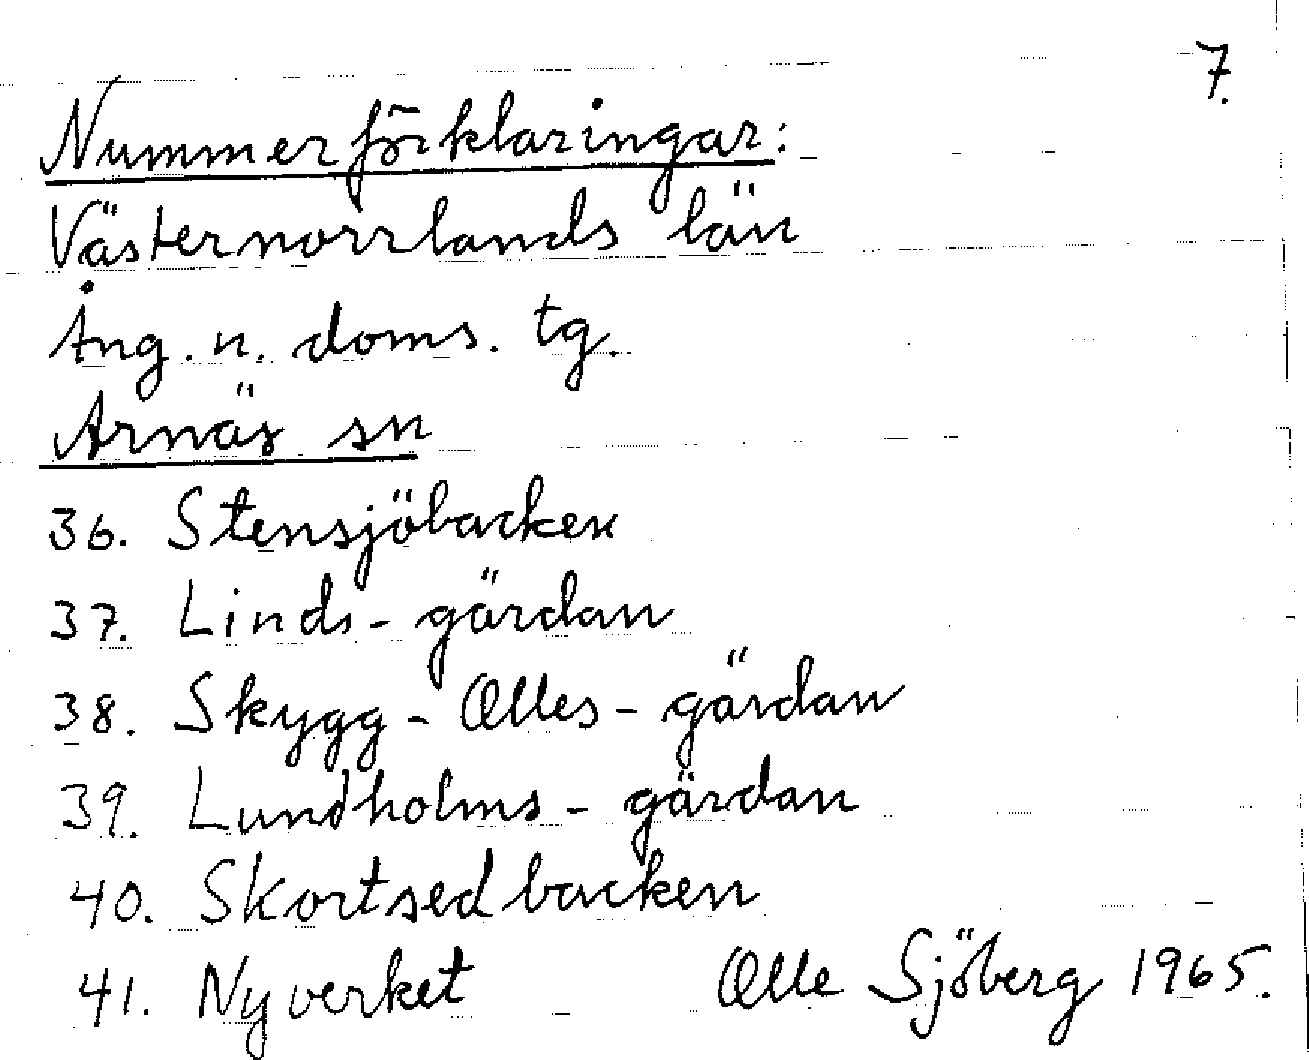 7.
Nummerförklaringar:
Västernorrlands län
Ång. n. doms. tg.
Arnäs sn
36. Stensjöbacken
37. Linds-gärdan
38. Skygg-Olles-gärdan
39. Lundholms-gärdan
40. Skortsedbacken
41. Nyverket Olle Sjöberg 1965.